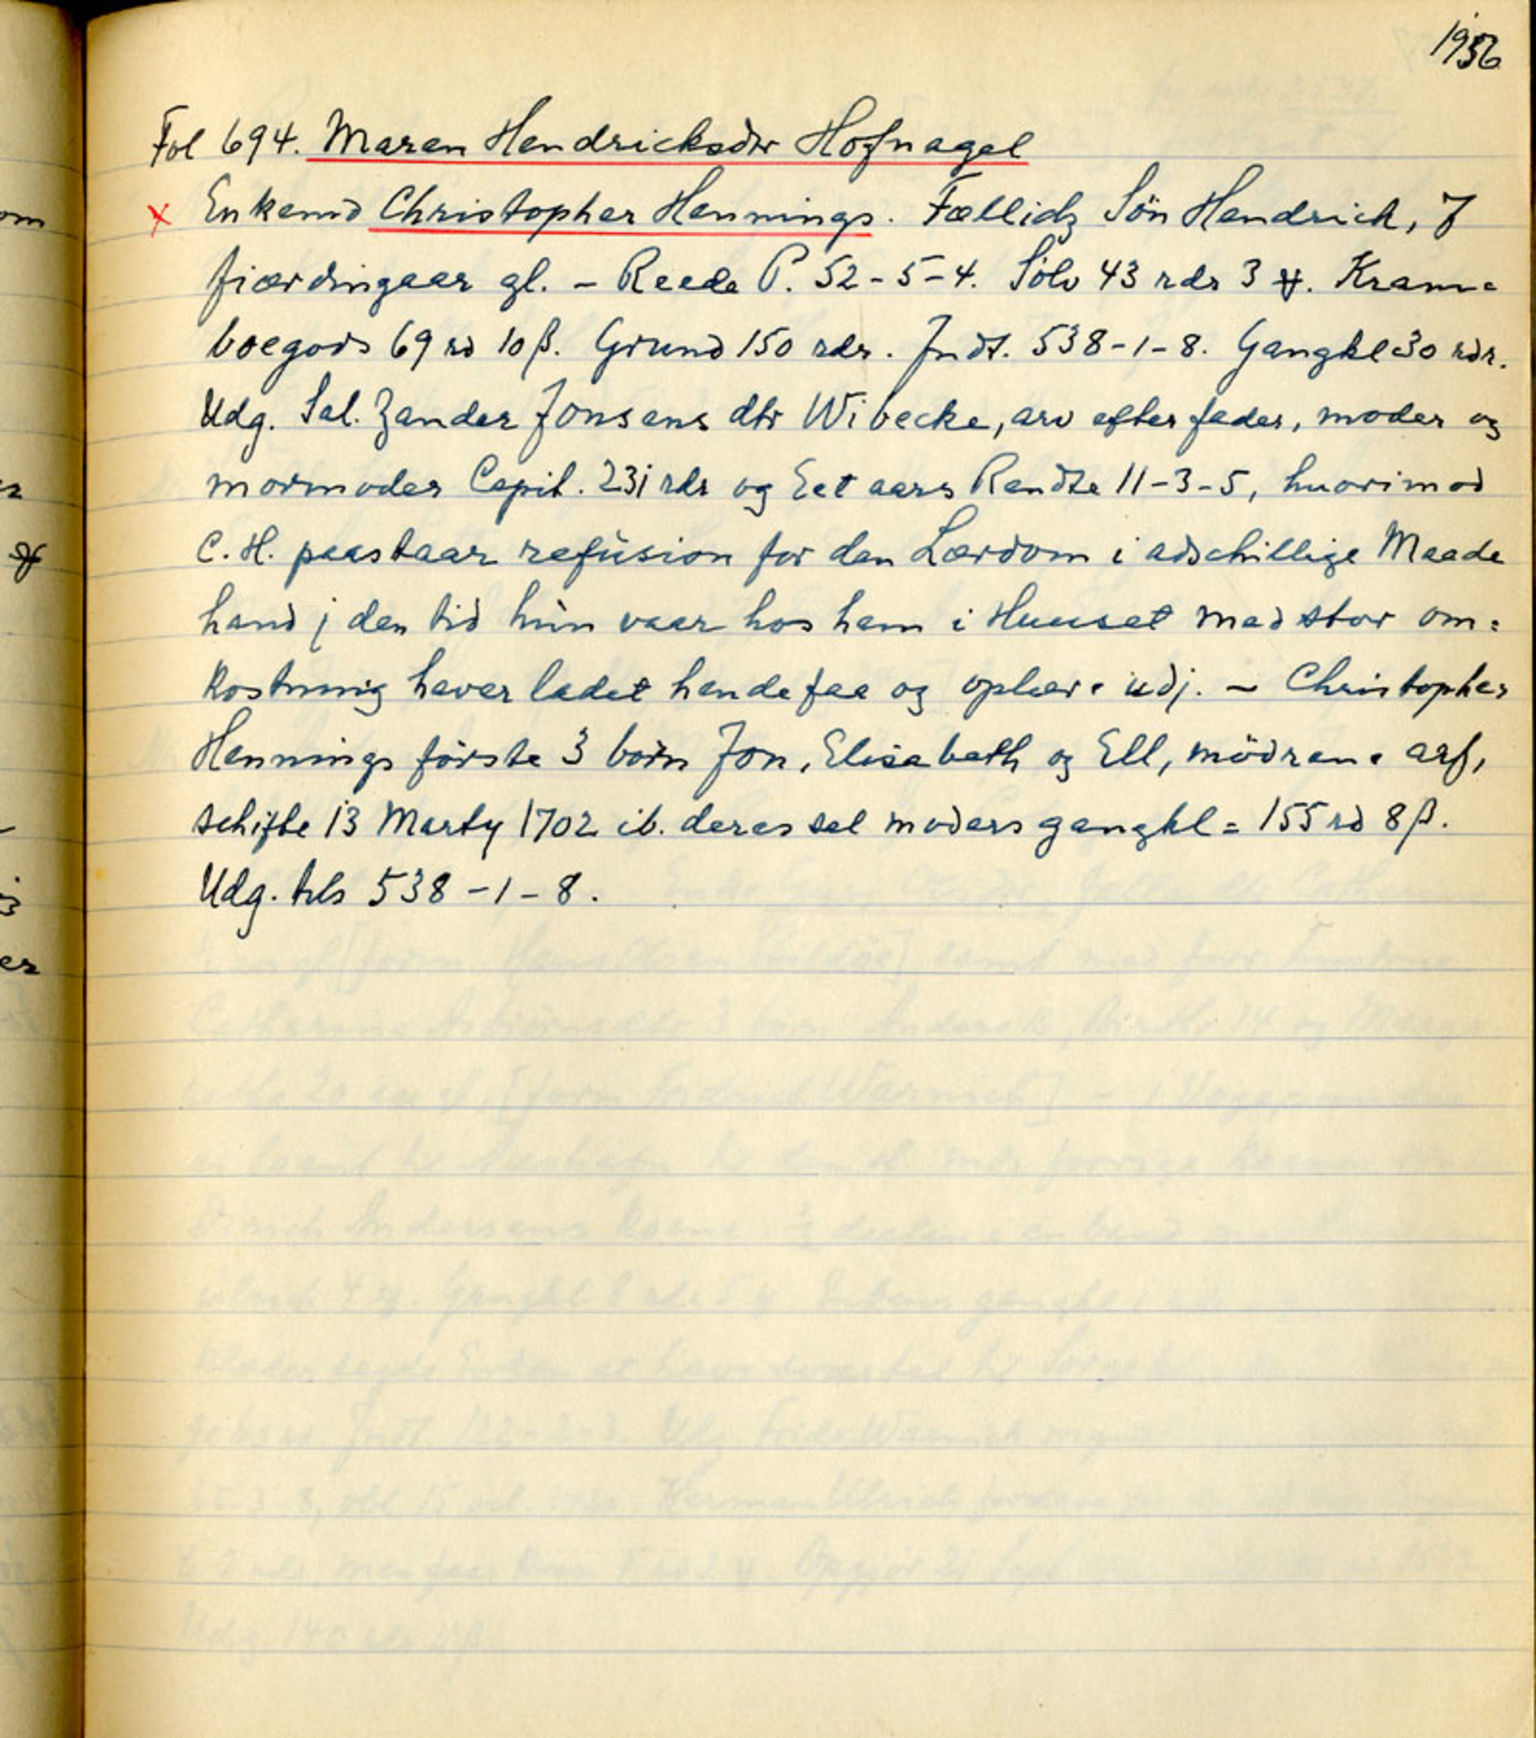 1956
Fol 694. Maren Hendricksdtr Hofnagel
x Enkemd Christopher Hennings. Fællidz Sön Hendrick, 7
fiærdingaar gl. - Reede P. 52-5-4. Sölv 43 rdr 3 ꝟ. Kram=
boegods 69 rd 10 β. Grund 150 rdr. Indt. 538-1-8. Gangkl 30 rdr.
Udg. Sal. Zander Jonsens dtr Wibecke, arv efter fader, moder og
mormoder Capit. 231 rdr og Eet aars Rendte 11-3-5, huorimod
C. H. paastaar refusion for den Lærdom i adschillige Maade
hand j den tid hun vaar hos ham i Huuset med stor om=
kostning haver ladet hende faa og oplære udj. - Christopher
Hennings förste 3 börn Jon, Elisabeth og Ell, mödrene arf,
schifte 13 Marty 1702 ib. deres sal moders gangkl = 155 rd 8 β.
Udg. tils 538-1-8.
om
er